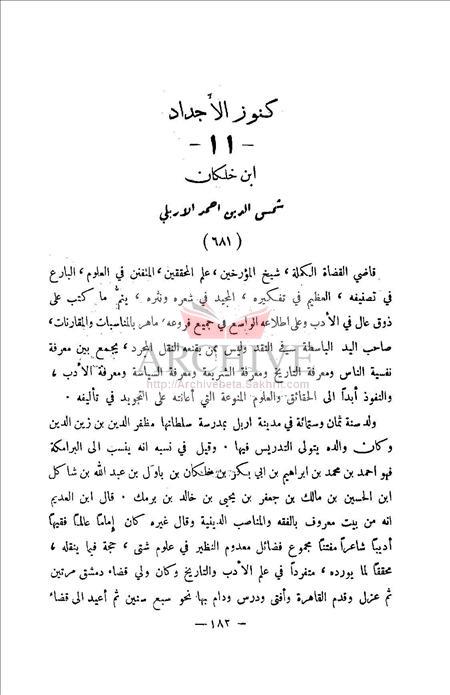 كنوز الأجداد
- ١١ -
ابن خلكان
شمس الدين احمد الاربلي
( ٦٨١ )
قاضي القضاة الكملة ، شيخ المؤرخين ، علم المحققين ، المتفنن في العلوم ، البارع
في تصنيفه ، العظيم في تفكيره ، المجيد في شعره ونثره ، ينمّ ما كتب على
ذوق عال في الأدب وعلى اطلاعه الواسع في جميع فروعه ، ماهر بالمناسبات والمقارنات ،
صاحب اليد الباسطة في النقد وليس ممن يقنعه النقل المجرد ، يجمع بين معرفة
نفسية الناس ومعرفة التاريخ ومعرفة الشريعة ومعرفة السياسة ومعرفة الأدب ،
والنفوذ أبداً الى الحقائق والعلوم المنوعة التي أعانته على التجويد في تأليفه .
ARCHIVE
http://Archivebeta.Sakhrit.com
ولد سنة ثمان وستمائة في مدينة اربل بمدرسة سلطانها مظفر الدين بن زين الدين
وكان والده يتولى التدريس فيها . وقيل في نسبه انه ينسب الى البرامكة
فهو احمد بن محمد بن ابراهيم بن ابي بكر بن خلكان بن باول بن عبد الله بن شاكل
ابن الحسين بن مالك بن جعفر بن يحيى بن خالد بن برمك . قال ابن العديم
انه من بيت معروف بالفقه والمناصب الدينية وقال غيره كان إماماً عالماً فقيهاً
أديباً شاعراً مفتناً مجموع فضائل معدوم النظير في علوم شتى ، حجة فيا ينقله ،
محققاً لما يورده ، متفرداً في علم الأدب والتاريخ وكان ولي قضاء دمشق مرتين
ثم عزل وقدم القاهرة وأفتى ودرس ودام بها نحو سبع سنين ثم أعيد الى قضاء
— ١٨٢ —